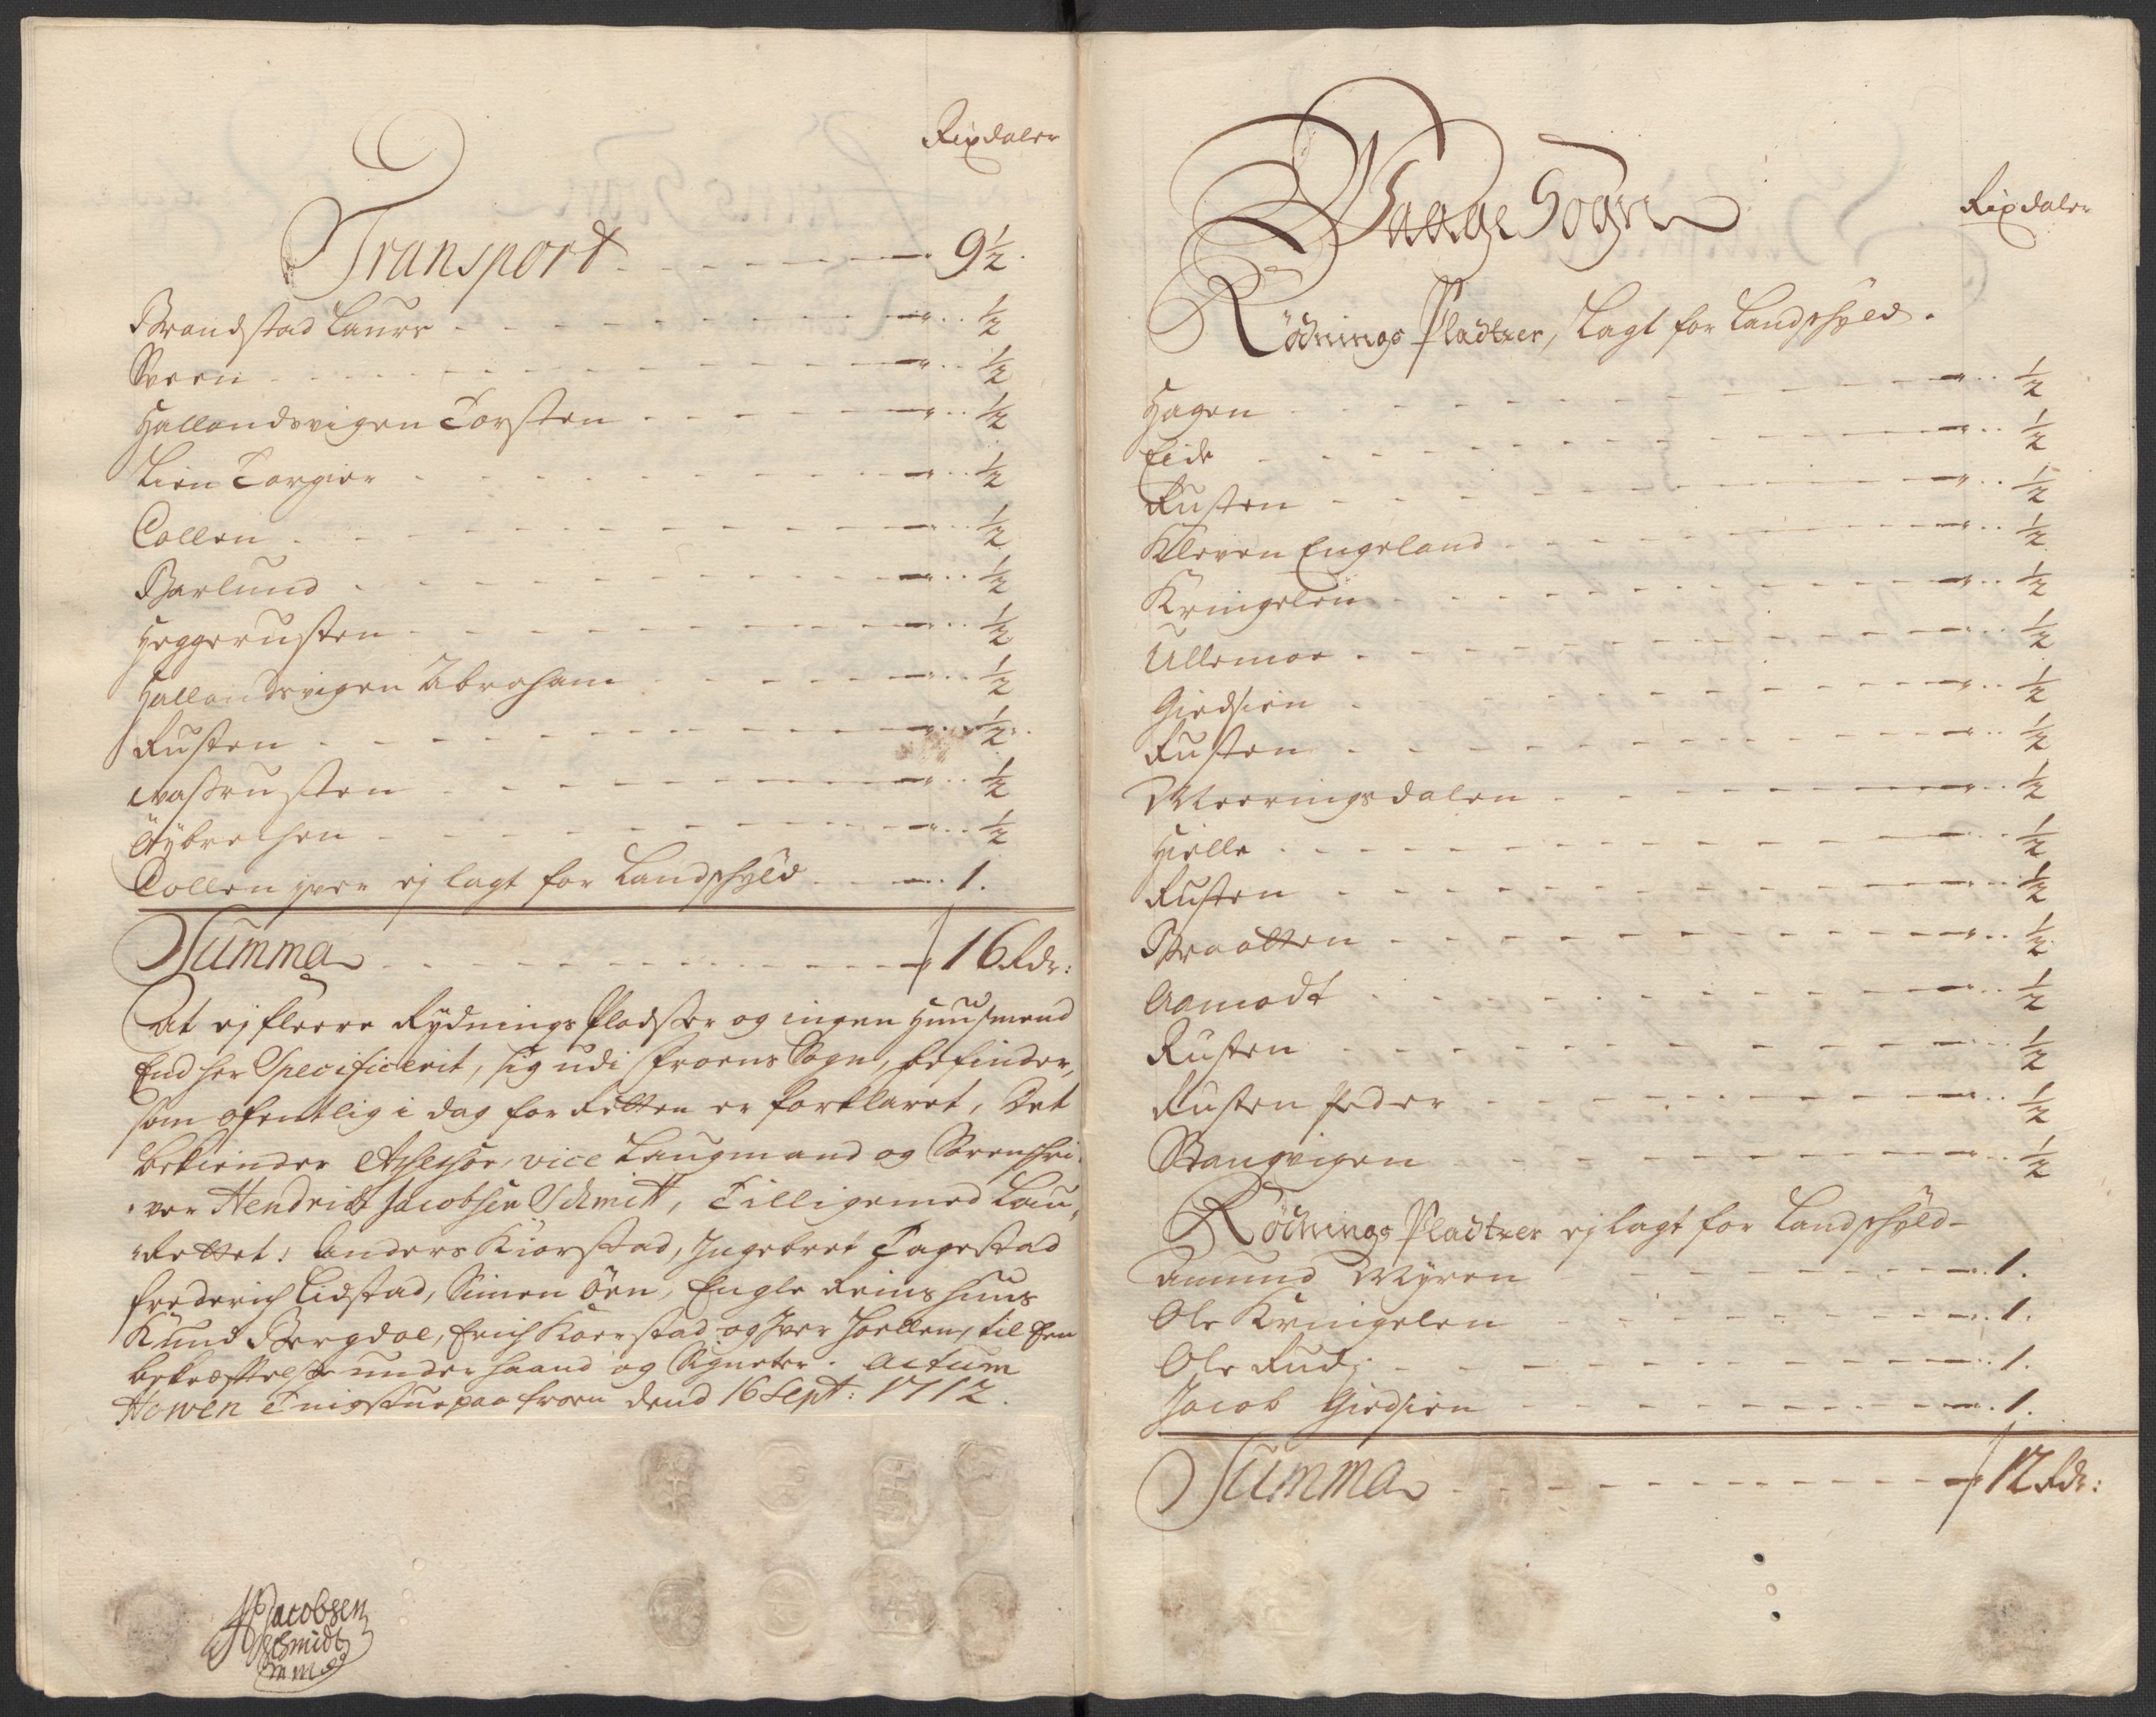 Rixdaler
Transport 9½
Brandstad Laurs ½
Sveen ½
Hallandsvigen Torsten ½
Lien Torgier ½
Collen ½
Barlund ½
Heggerusten ½
Hallandsvigen Abraham ½
Rusten ½
Wasrusten ½
½
Collen Iver ej lagt for Landschyld 1.
Summa 16 Rdr:
At ej fleere Rydnings Pladtzer og ingen Huusmend
End her Specificerit, sig udi Froens Sogn, befinder,
som ofentlig i dag for Retten er forklaret, Det
bekiender Assessor, vice Laugmand og Sorenschri-
ver Hendrich Jacobsen Schmitt, Tilligemed Lau-
Rettet: Anders Kiorstad, Ingebret Tagestad
Frederich Lidstad, Simen Öen, Engle Reinshuus
Knud Bergdal, Erich Kaerstad og Iver Joellen, til Een
bekræftelse under haand og Signeter. Actum
Howen Tingstue paa Froen dend 16 Sept: 1712.
HJacobsen
Schmidt
mmp
Waage Sogn
Rixdaler
Rödnings Pladtzer, Lagt for Landschyld.
Hagen ½
Eide ½
Rusten ½
Kleven Engeland ½
Kringelen ½
Ullemoe ½
Giedsien ½
Rusten ½
Meeringsdalen ½
Hielle ½
Rusten ½
Braatten ½
Aamodt ½
Rusten ½
Rusten Peder ½
Stangvigen ½
Rödnings Pladtzer ej lagt for Landschyld
Amund Myren 1.
Ole Kringelen 1.
Ole Rud 1.
Jacob Giedsien 1.
Summa 12 Rdr: